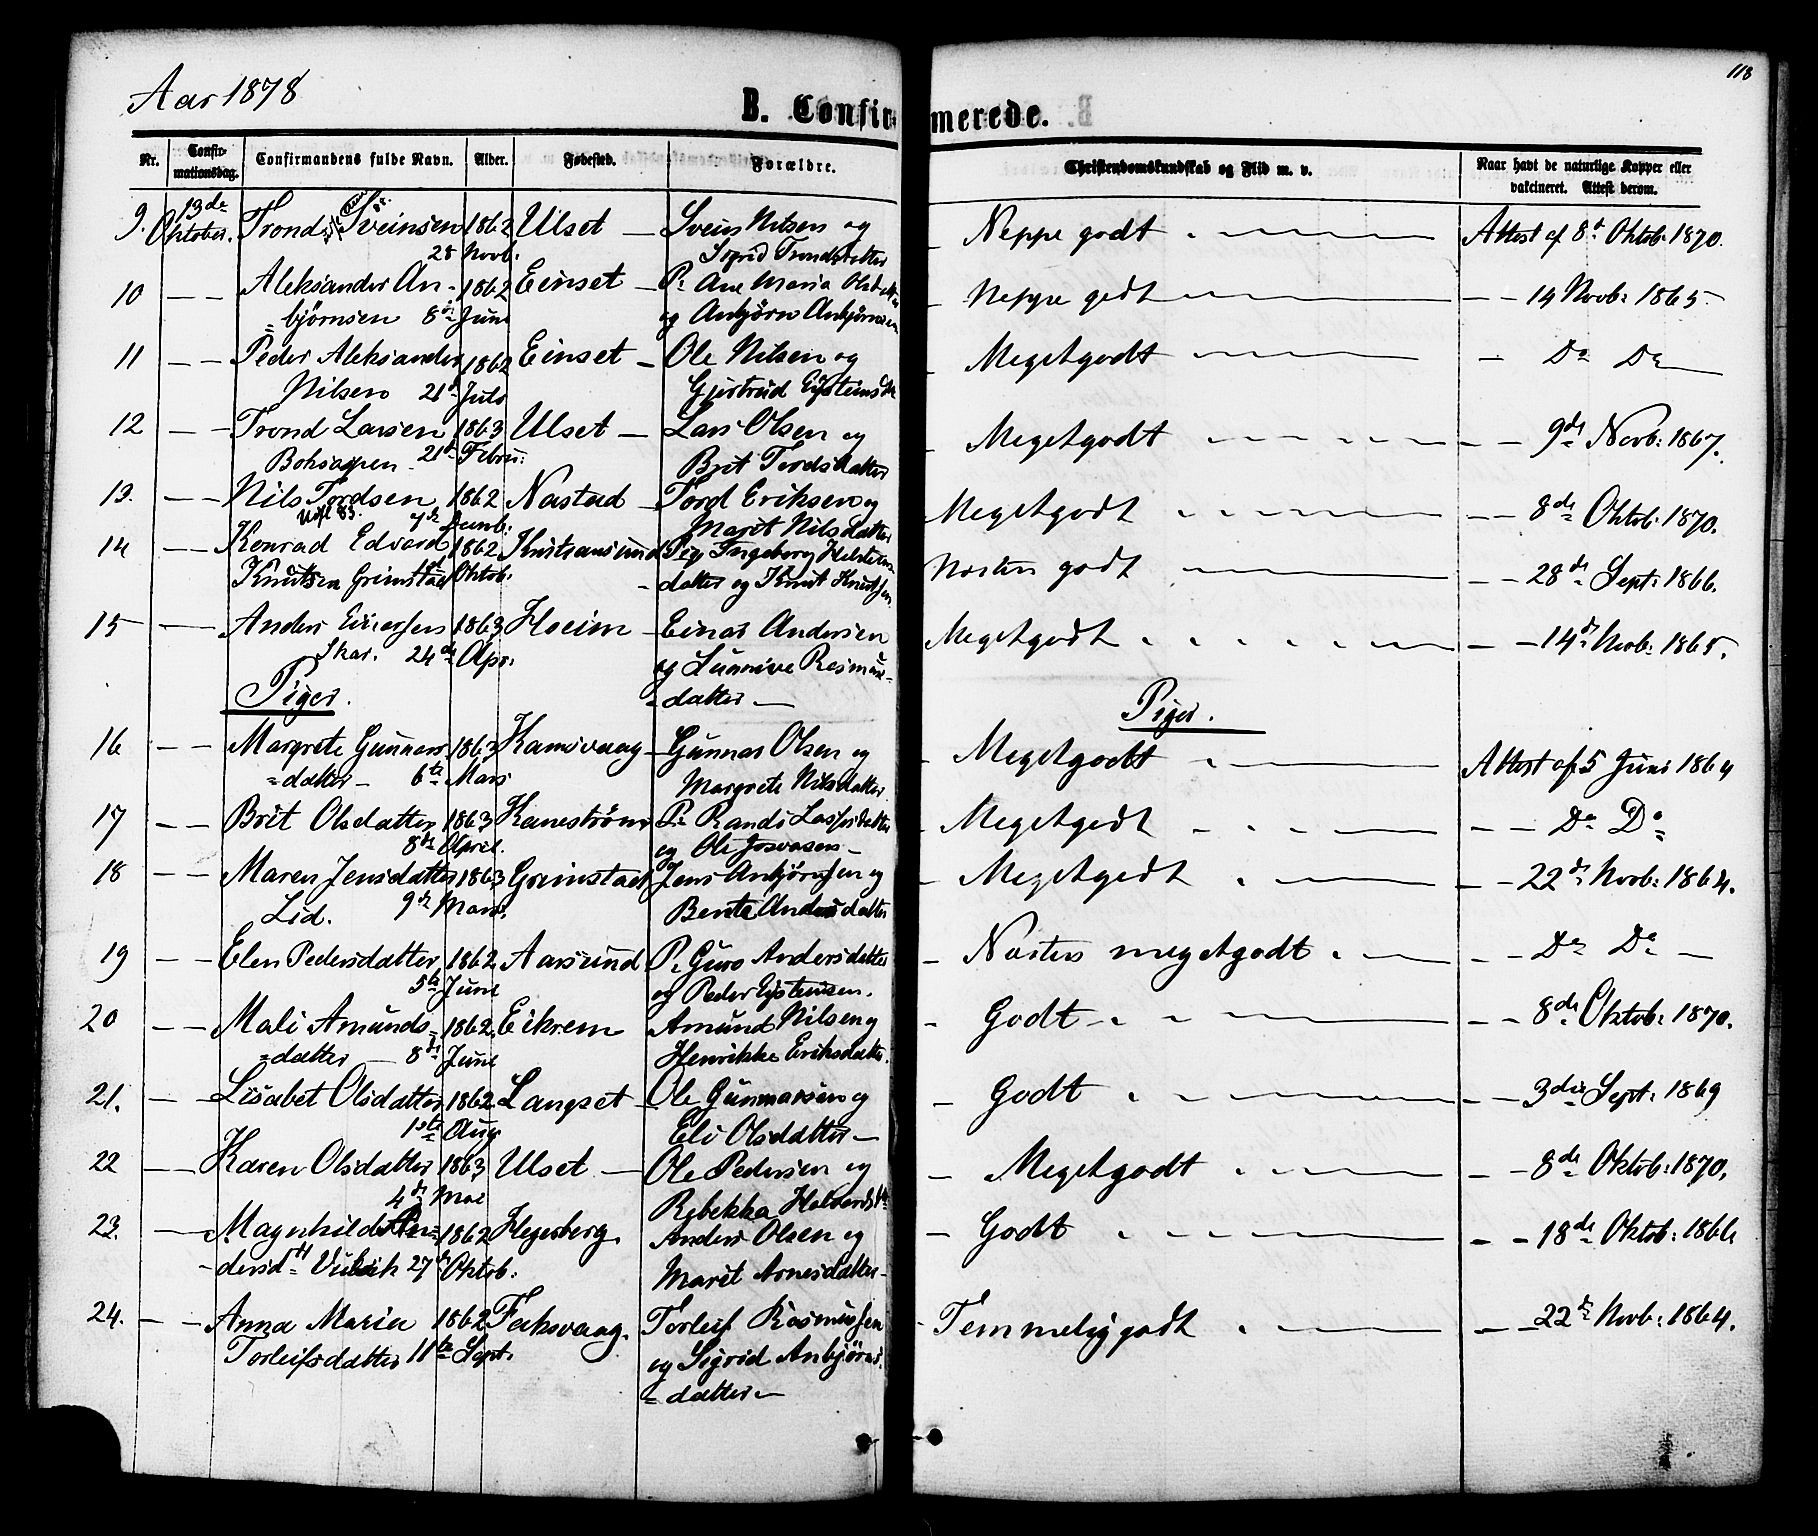 118
Aar 1878
B. Confirmerede.
Nr. Confirmationsdag. Confirmandens fulde Navn. Alder. Fødested. Forældre. Christendomskundskab og Flid m. v. Naar havt de naturlige Kopper eller vakcineret. Attest derom.
9. 13de Oktober. Trond Sveinsen 1862 Ulset Svein Nilsen og Neppe godt Attest af 8d Oktob: 1870.
28 Novb: Sigrid Trondsdatter
10 Aleksander An- 1862 Einset P. Ane Maria Olsdatter Neppe godt 14 Novb: 1865.
=bjørnsen 8de Juni og Anbjørn Anbjørnsen
11 Peder Aleksander 1862 Einset Ole Nilsen og Megetgodt Do Do
Nilsen 21d Juli Gjertrud Eysteinsdtr
12 Trond Larsen 1863 Ulset Lars Olsen og Megetgodt 9de Novb: 1867.
21d Febru: Brit Tordsdatter
13. Nils Tordsen 1862 Nastad Tord Eriksen og Megetgodt 8de Oktob: 1870.
7de Marit Nilsdatter
14 Konrad Edvard 1862 Kristiansund Pig Ingeborg Næsten godt 28de Sept: 1866.
Knutsen Grimstad Oktob: datter og Knut Knutsen
15 Anders Einersen 1863 Hoeim Einar Andersen Megetgodt 14d Novb: 1865.
Skar. 24de Apr: og Sunnive Rasmus=
=datter
Piger. Piger.
16 Margrete Gunnars 1863 Kamsvaag Gunnar Olsen og Megetgodt Attest af 5 Juni 1864
=datter 6te Mars Margrete Nilsdatter
17 Brit Olsdatter 1863 Kanestrøm P. Randi Lassesdatter Megetgodt Do Do
8de April. og Ole
18 Maren Jensdatter 1863 Grimstad Jens Anbjørnsen og Megetgodt 22de Novb: 1864.
Lid. 9de Mars. Bente Andersdatter
19 Elen Pedersdatter 1862 Aarsund P. Guro Andersdatter Næsten megetgodt Do Do
5te Juni og Peder Eysteinsen.
20 Mali Amunds= 1862 Eikrem Amund Nilsen og Godt 8de Oktob: 1870.
=datter 8de Juni Henrikke Eriksdatter.
21. Lisabet Olsdatter 1862 Langset Ole Gunnarsen og Godt 3die Sept: 1869
1ste Aug Eli Olsdatter
22 Karen Olsdatter 1863 Ulset Ole Pedersen og Megetgodt 8de Oktob: 1870.
4de Mai Rebekka
23. Magnhild An= 1862 Hegerberg. Anders Olsen og Godt 18de Oktob: 1866
-dersdt 27de Oktob: Marit Arnesdatter
24. Anna Maria 1862 Faksvaag. Torleif Rasmussen Temmelig godt 22de Novb: 1864.
Torleifsdatter 11te Sept. og Sigrid Anbjørns
=datter